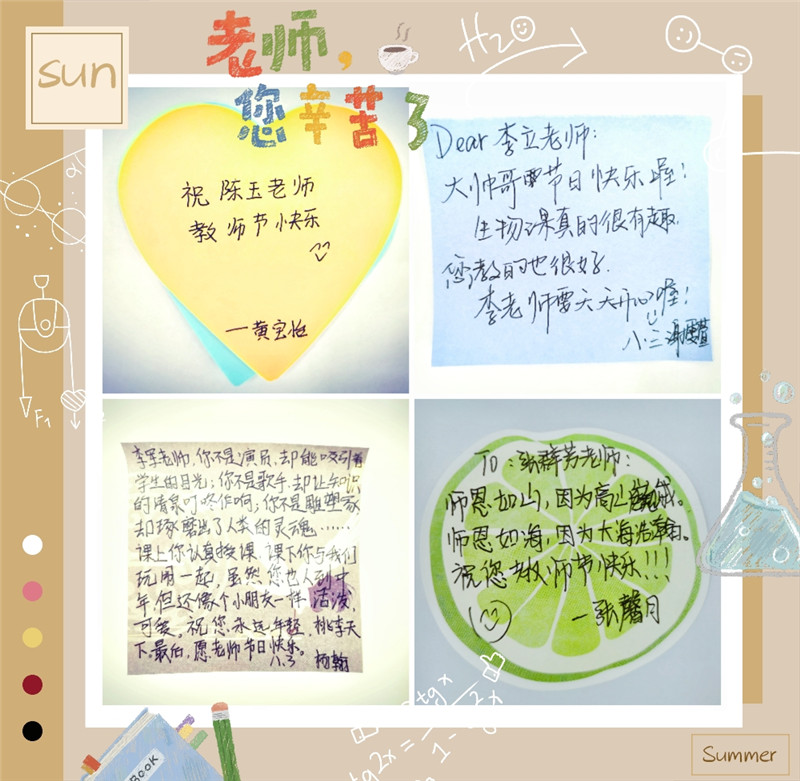 sun
老师，
您辛苦了
H2O
祝陈玉老师
教师节快乐
一黄宝怡
Dear 李立老师：
大帅哥 节日快乐喔！
生物课真的很有趣.
您教的也很好.
李老师要天天开心喔！
八.三
李军老师，你不是演员，却能吸引着
学生的目光；你不是歌手，却让知识
的清泉叮咚作响；你不是雕塑家
却琢磨出了人类的灵魂……
课上你认真授课，课下你与我们
玩闹一起，虽然您也人到中
年但还像个小朋友一样活泼，
可爱。祝您永远年轻，桃李天
下。最后，愿老师节日快乐。
八.3 杨翰
To：张辞芳老师：
师恩如山，因为高山巍峨。
师恩如海，因为大海浩瀚。
祝您教师节快乐!!!
一张馨月
F1
BOOK
tgx
tg2x=
1-
Summer